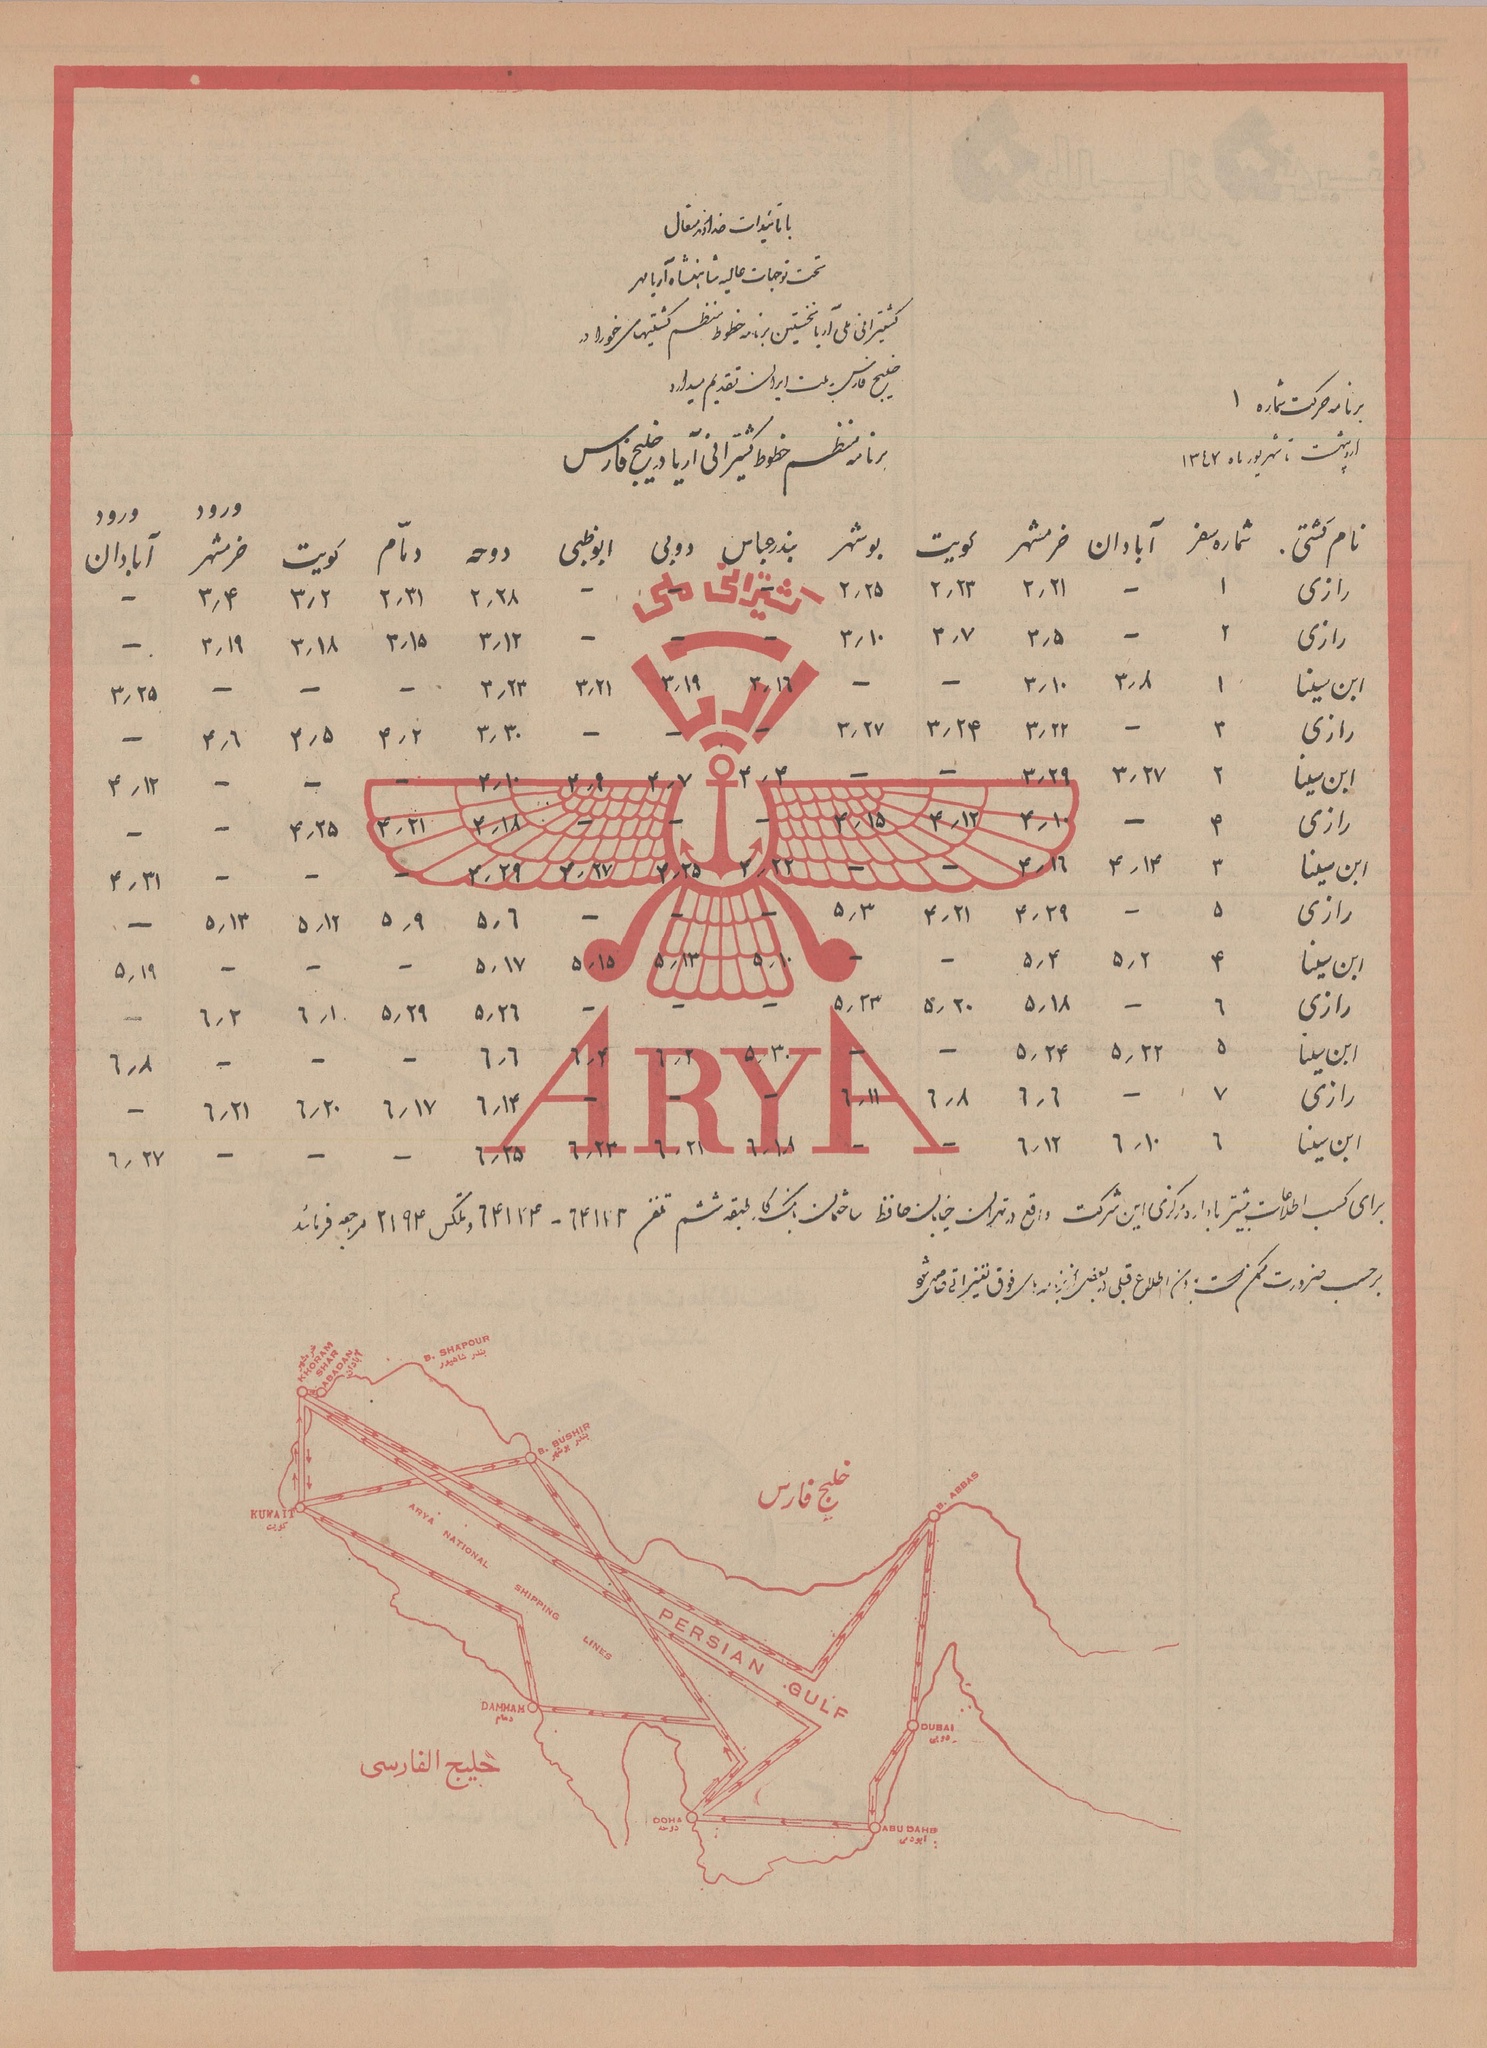 با تائیدات خداوند متعال
تحت توجهات عالیه شاهنشاه آریامهر
کشتیرانی ملی آریا نخستین برنامه خطوط منظم کشتیهای خود را در
خلیج فارس به ملت ایران تقدیم میدارد
برنامه منظم خطوط کشتیرانی آریا در خلیج فارس
برنامه حرکت شماره ۱
اردیبهشت تا شهریور ماه ۱۳۴۷
نام کشتی . شماره سفر آبادان خرمشهر کویت بوشهر بندرعباس دوبی ابوظبی دوحه دمّام کویت ورود خرمشهر ورود آبادان
رازی ۱ – ۲٫۲۱ ۲٫۲۳ ۲٫۲۵ – – – ۲٫۲۸ ۲٫۳۱ ۳٫۲ ۳٫۴ –
رازی ۲ – ۳٫۵ ۳٫۷ ۳٫۱۰ – – – ۳٫۱۲ ۳٫۱۵ ۳٫۱۸ ۳٫۱۹ –
ابن سینا ۱ ۳٫۸ ۳٫۱۰ – – ۳٫۱۶ ۳٫۱۹ ۳٫۲۱ ۳٫۲۳ – – – ۳٫۲۵
رازی ۳ – ۳٫۲۲ ۳٫۲۴ ۳٫۲۷ – – – ۳٫۳۰ ۴٫۲ ۴٫۵ ۴٫۶ –
ابن سینا ۲ ۳٫۲۷ ۳٫۲۹ – – ۴٫۴ ۴٫۷ ۴٫۹ ۴٫۱۰ – – – ۴٫۱۲
رازی ۴ – ۴٫۱۰ ۴٫۱۲ ۴٫۱۵ – – – ۴٫۱۸ ۴٫۲۱ ۴٫۲۵ – –
ابن سینا ۳ ۴٫۱۴ ۴٫۱۶ – – ۴٫۲۲ ۴٫۲۵ ۴٫۲۷ ۴٫۲۹ – – – ۴٫۳۱
رازی ۵ – ۴٫۲۹ ۴٫۲۱ ۵٫۳ – – – ۵٫۶ ۵٫۹ ۵٫۱۲ ۵٫۱۳ –
ابن سینا ۴ ۵٫۲ ۵٫۴ – – ۵٫۱۰ ۵٫۱۳ ۵٫۱۵ ۵٫۱۷ – – – ۵٫۱۹
رازی ۶ – ۵٫۱۸ ۵٫۲۰ ۵٫۲۳ – – – ۵٫۲۶ ۵٫۲۹ ۶٫۱ ۶٫۲ –
ابن سینا ۵ ۵٫۲۲ ۵٫۲۴ – – ۵٫۳۰ ۶٫۲ ۶٫۴ ۶٫۶ – – – ۶٫۸
رازی ۷ – ۶٫۶ ۶٫۸ ۶٫۱۱ – – – ۶٫۱۴ ۶٫۱۷ ۶٫۲۰ ۶٫۲۱ –
ابن سینا ۶ ۶٫۱۰ ۶٫۱۲ – – ۶٫۱۸ ۶٫۲۱ ۶٫۲۳ ۶٫۲۵ – – – ۶٫۲۷
کشتیرانی ملی
آریا
ARYA
برای کسب اطلاعات بیشتر با اداره مرکزی این شرکت واقع در تهران خیابان حافظ ساختمان بانک کار طبقه ششم تلفن ۶۴۱۱۳ – ۶۴۱۱۴ و تلکس ۲۱۹۴ مراجعه فرمائید
برحسب ضرورت ممکن است بدون اطلاع قبلی در بعضی از برنامه های فوق تغییراتی
خرمشهر
KHORAM
SHAR
ABADAN
آبادان
B. SHAPOUR
بندر شاهپور
B. BUSHIR
بندر بوشهر
خلیج فارس
B. ABBAS
KUWAIT
کویت
ARYA NATIONAL SHIPPING LINES
PERSIAN GULF
DAMMAM
دمام
DUBAI
دوبی
خلیج الفارسی
DOHA
دوحه
ABU DAHB
ابودبی